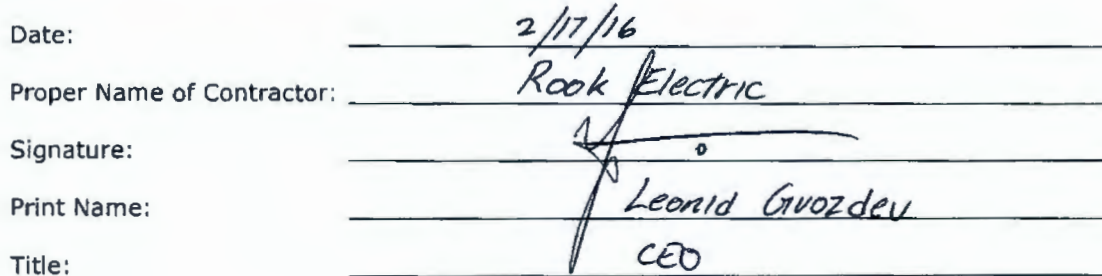 Date: 2/17/16
Proper Name of Contractor: Rook Electric
Signature:
Print Name: Leonid Gvozdev
Title: CEO